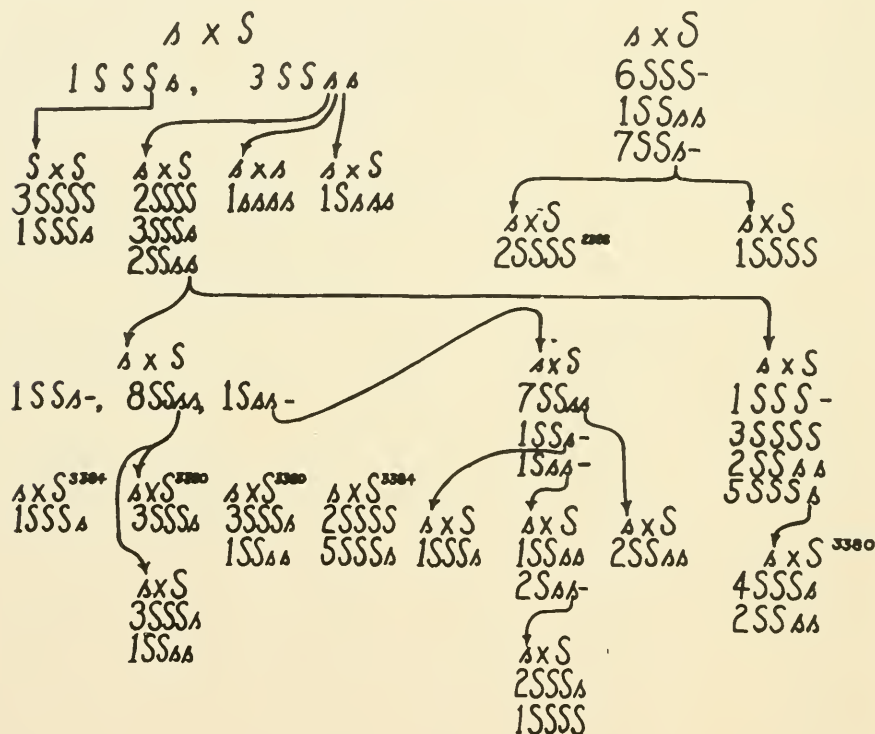 s x S
1 S S S s, 3 S S s s
s x S
6SSS-
1SSss
7SSs-
S x S
3SSSS
1SSSs
s x S
2SSSS
3SSSs
2SSss
s x s
1ssss
s x S
1Ssss
s x S
2SSSS 2388
s x S
1SSSS
s x S
1SSs-, 8SSss, 1Sss-
s x S
7SSss
1SSs-
1Sss-
s x S
1SSS-
3SSSS
2SSss
5SSSs
s x S 3384
1SSSs
s x S 3380
3SSSs
s x S 3380
3SSSs
1SSss
s x S 3384
2SSSS
5SSSs
s x S
1SSSs
s x S
1SSss
2Sss-
s x S
2SSss
s x S 3380
4SSSs
2SSss
s x S
3SSSs
1SSss
s x S
2SSSs
1SSSS